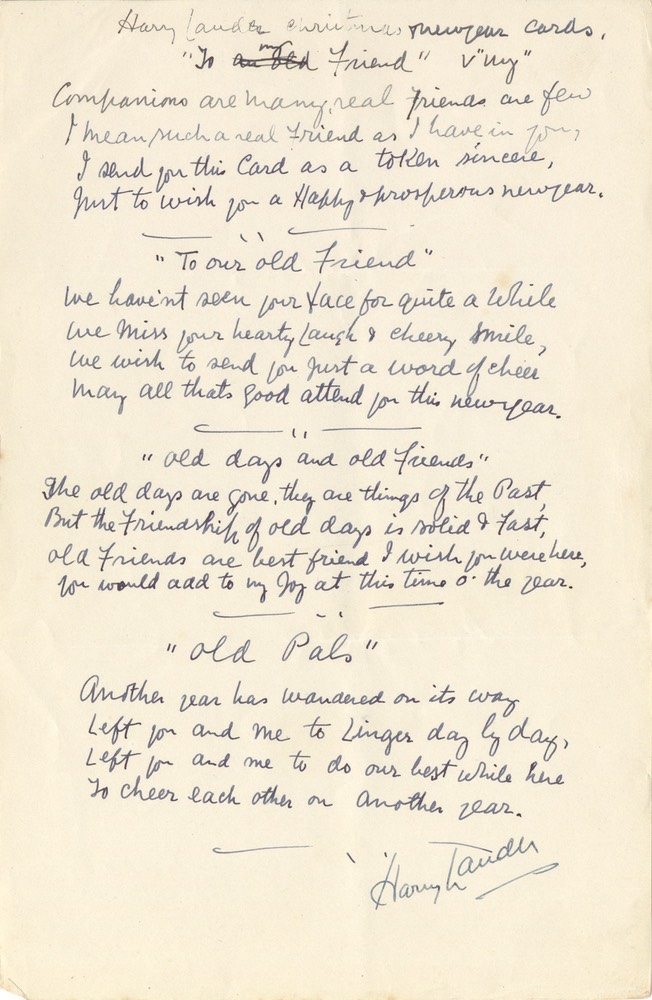 Harry Lauder christmas & newyear cards.
"To my Friend" V "my"
Companions are many, real friends are few
I mean such a real Friend as I have in you,
I send you this Card as a token sincere,
Just to wish you a Happy & prosperous newyear.
"To our old Friend"
We have'nt seen your face for quite a while
We Miss your hearty Laugh & cheery smile,
We wish to send you Just a word of cheer
May all thats good attend you this newyear.
"old days and old Friends"
The old days are gone, they are things of the Past,
But the Friendship of old days is solid & Fast,
old Friends are best friend I wish you were here,
you would add to my Joy at this time o' the year.
"old Pals"
Another year has wandered on its way
Left you and me to Linger day by day,
Left you and me to do our best while here
To cheer each other on Another year.
Harry Lauder